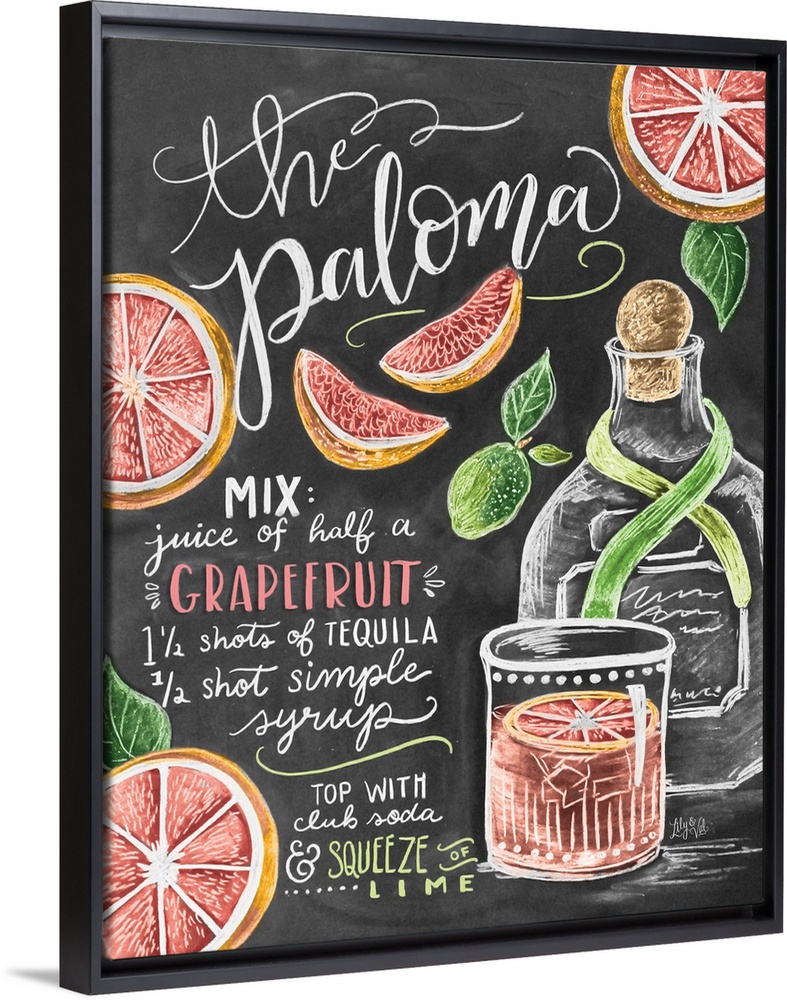 the
paloma
MIX:
juice of half a
GRAPEFRUIT
1 1/2 shots of TEQUILA
1/2 shot simple
syrup
TOP WITH
club soda
& SQUEEZE OF
LIME
Lily & Val